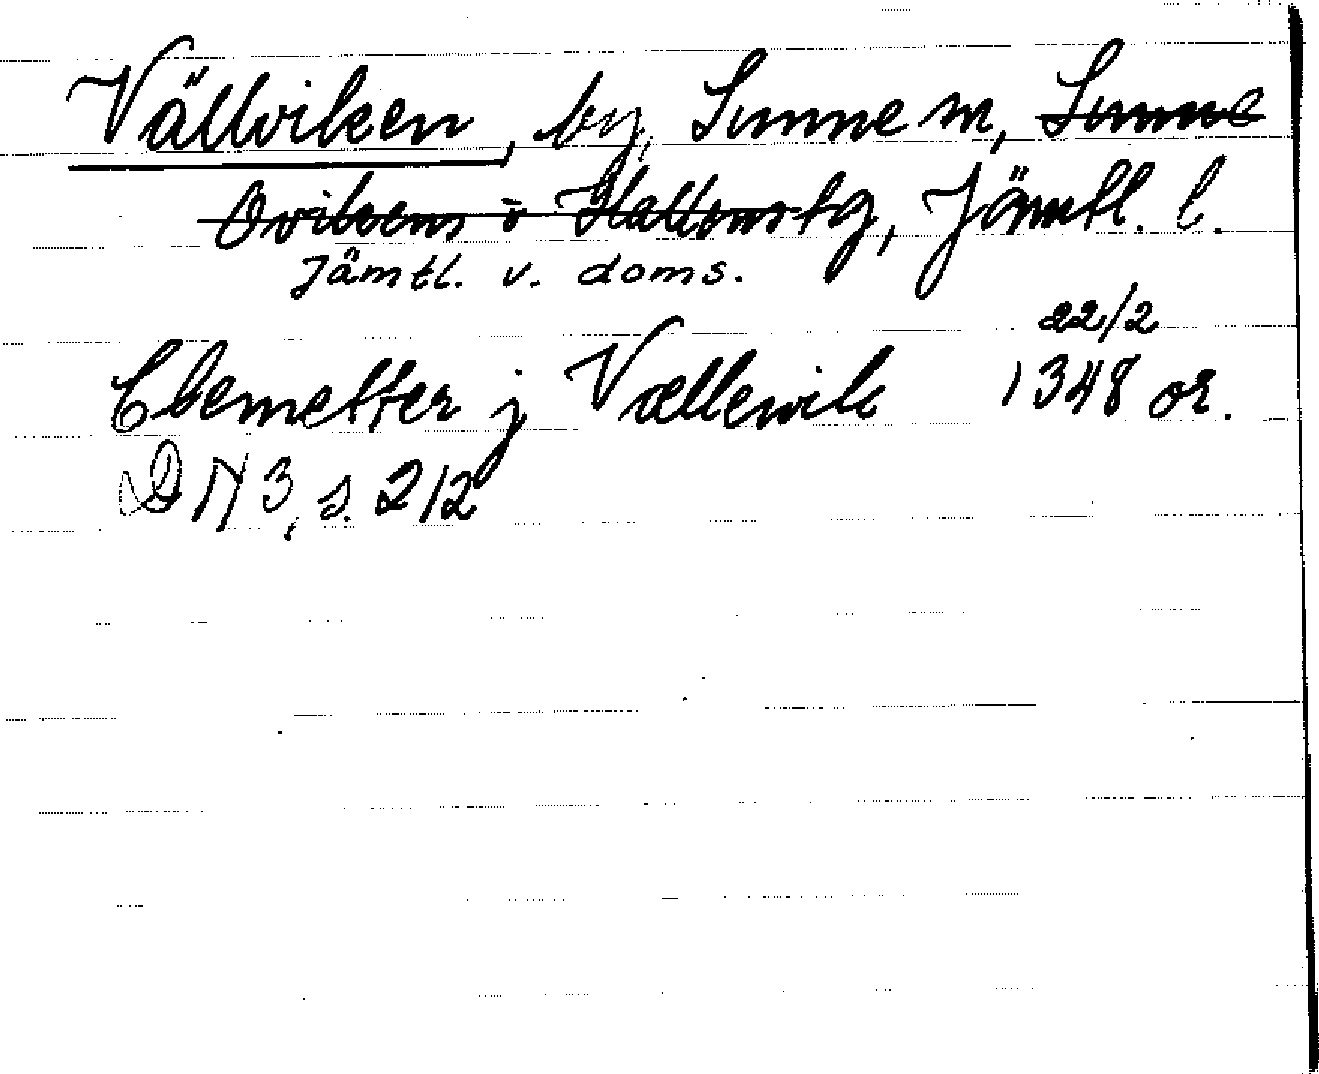 Vällviken, by, Sunne sn, Sunne
Ovikens o Hallens tg, Jämtl. l.
Jämtl. v. doms.
22/2
Clemetter j Vællewik 1348 or.
DN 3, s. 212